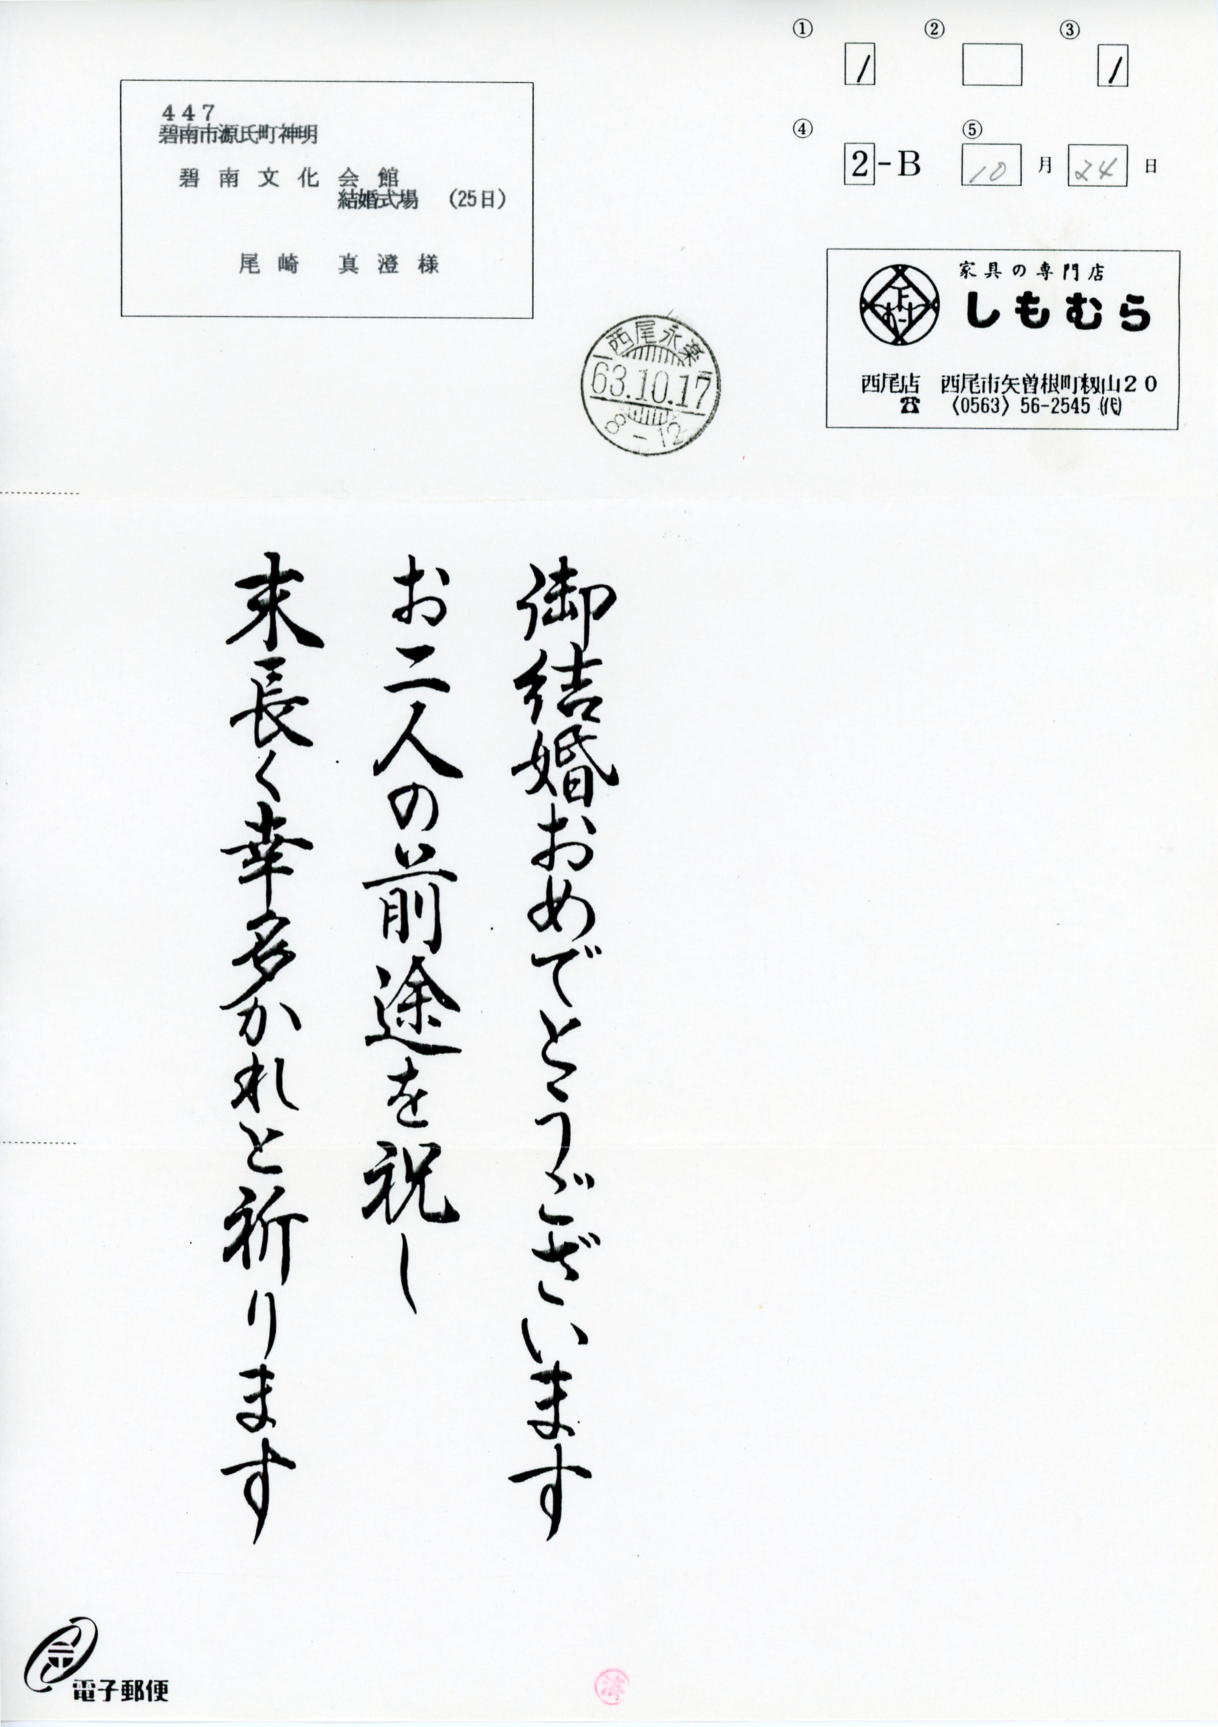 ① ② ③
1 1
④ ⑤
2-B 10月24日
447
碧南市源氏町神明
碧南文化会館
結婚式場 (25日)
尾崎 真澄様
家具の専門店
しもむら
西尾店 西尾市矢曽根町籾山20
☎ (0563) 56-2545 (代)
西尾永楽
63.10.17
8-12
御結婚おめでとうございます
お二人の前途を祝し
末長く幸多かれと祈ります
電子郵便